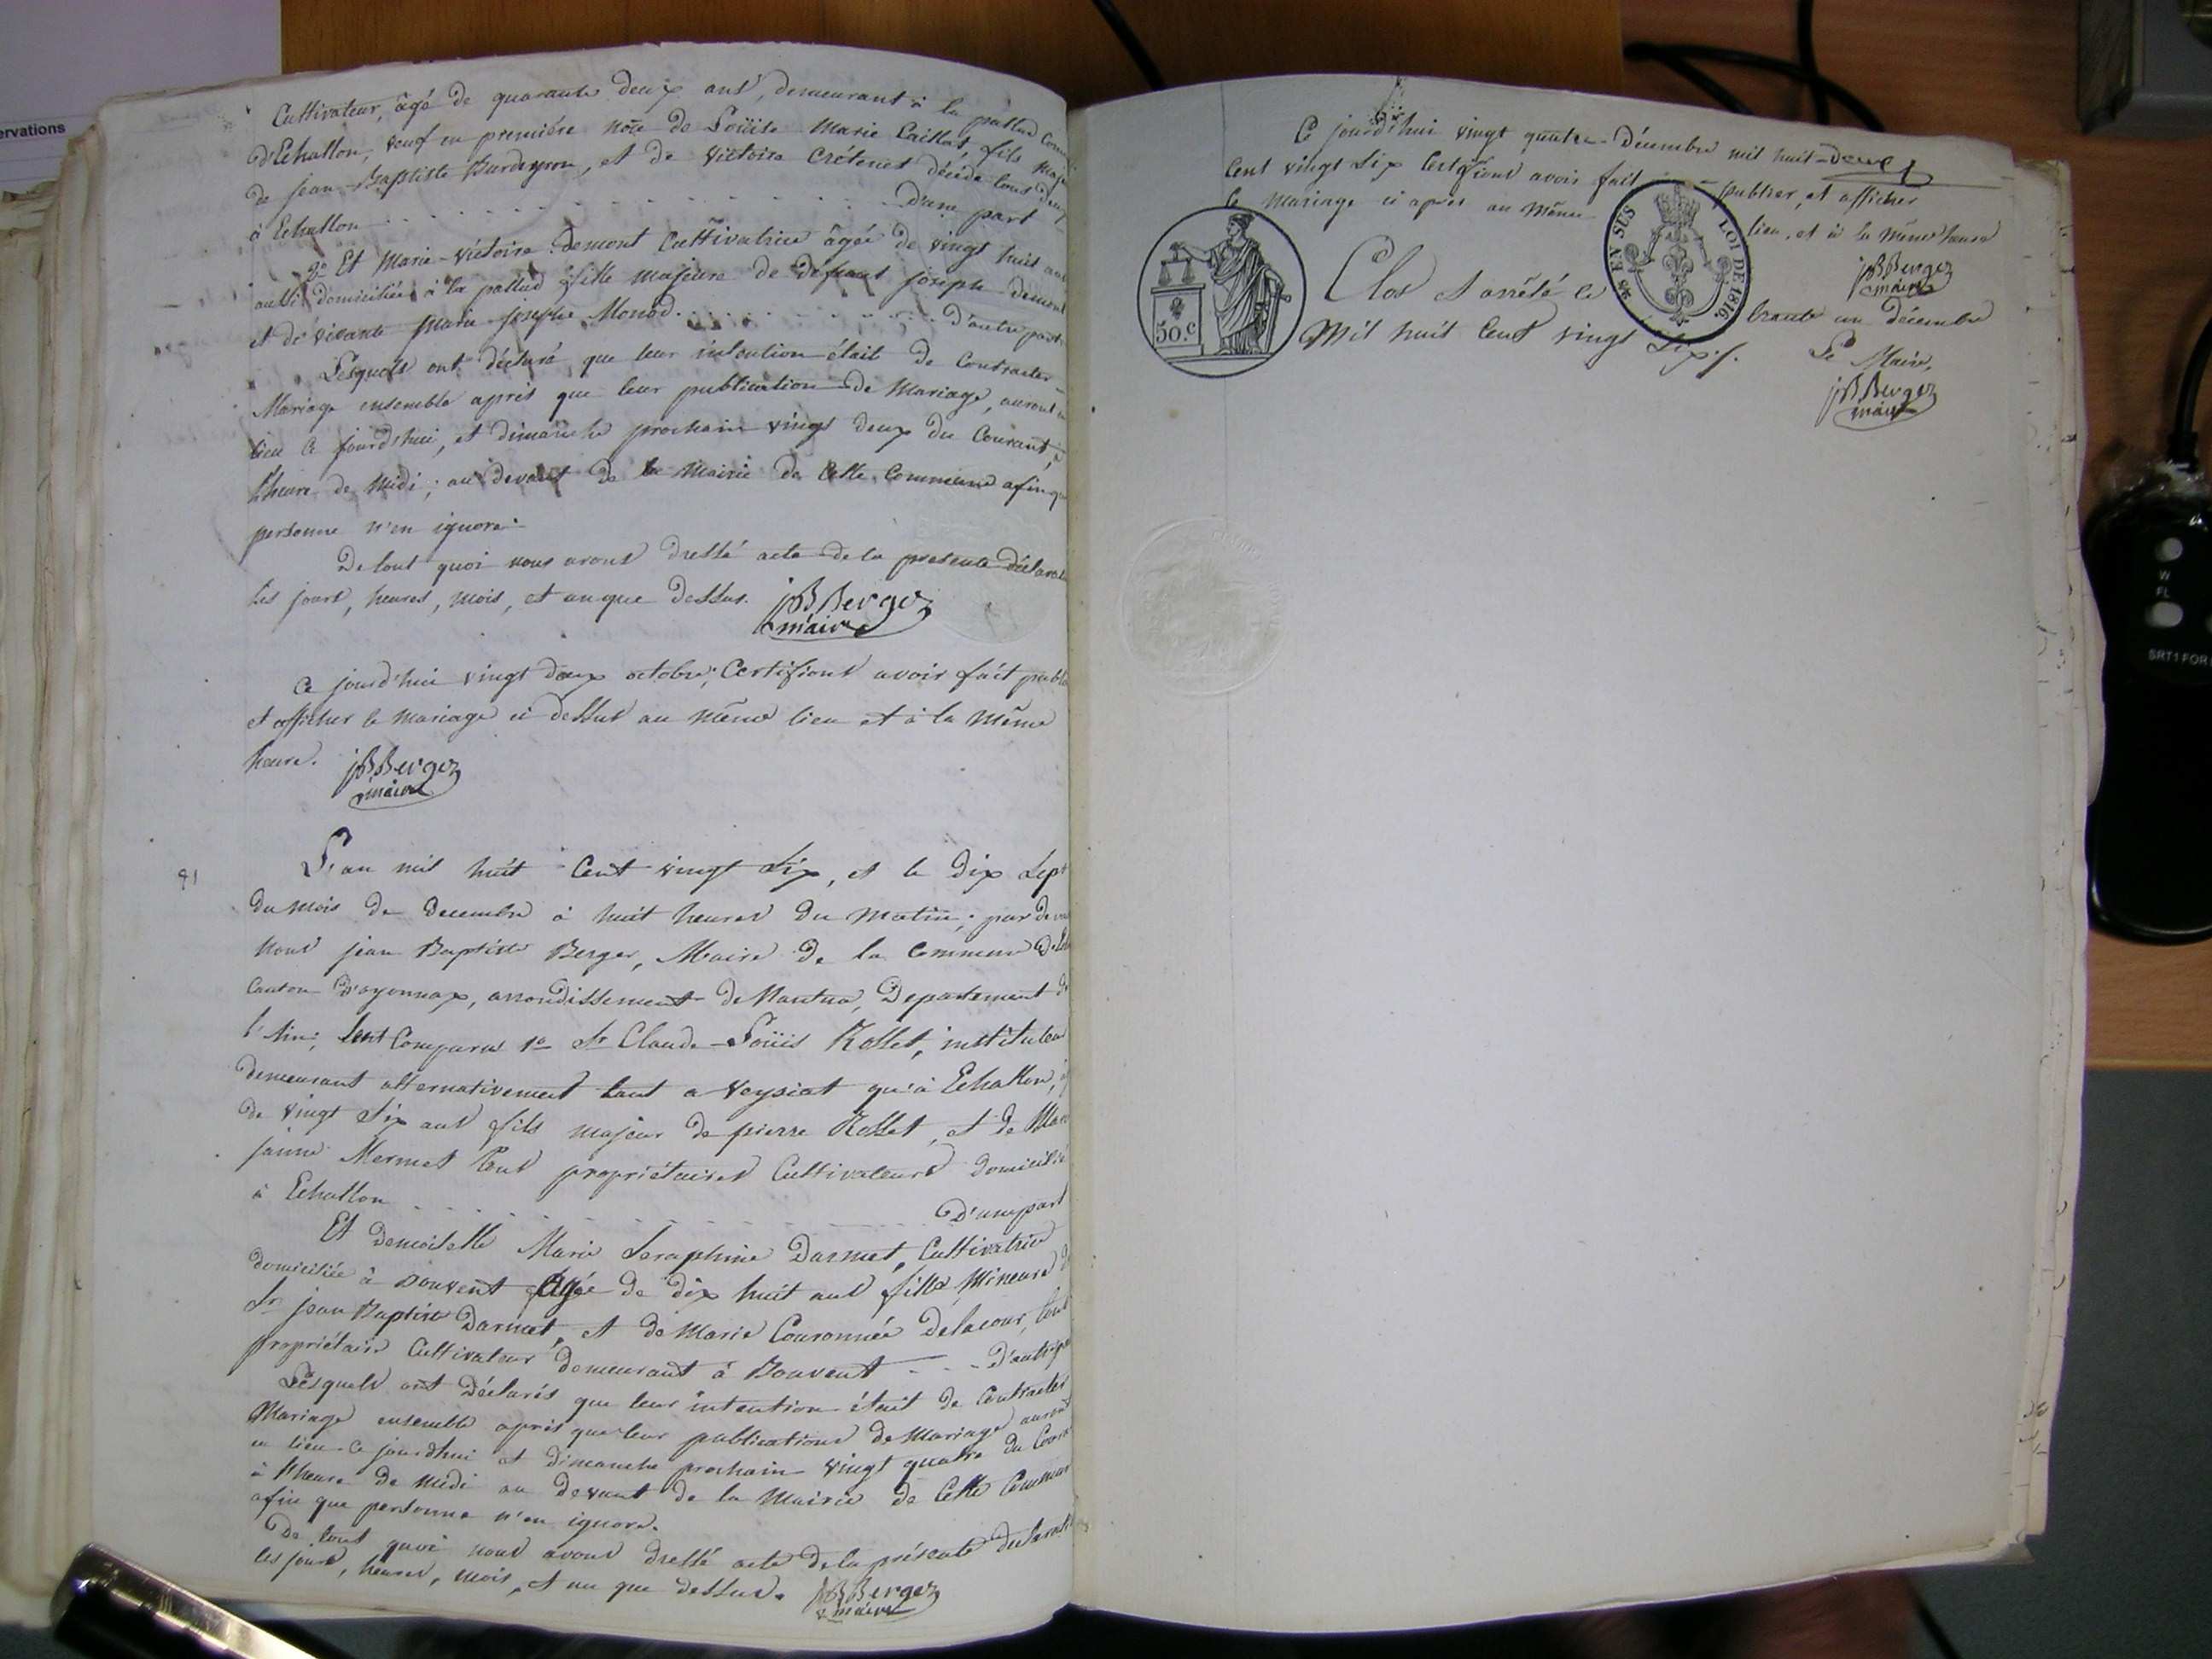 ervations
Cultivateur, âgé de quarante deux ans, demeurant à la pallud
d'Echallon, veuf en première nôce de Loüise Marie Caillat, fils
de jean-Baptiste Burdeyron, et de victoire Crétenet décédé tous deux
à Echallon . . . . . . . . . . . . . . . . d'une part
2º Et Marie-Victoire Demont Cultivatrice âgée de vingt huit ans
aussi domiciliée à la pallud fille majeure de defunt joseph Demont
et de vivante Marie josephe Monod . . . . . . . . . d'autre part
Lesquels ont déclaré que leur intention était de Contracter
Mariage ensemble après que leur publication de Mariage, auront
lieu ce jourd'hui, et dimanche prochain vingt deux du Courant, à
l'heure de Midi; au devant de la Mairie de Cette Commune afin que
personne n'en ignore.
De tout quoi nous avons dressé acte de la presente
les jours, heures, mois, et an que dessus. jB Berger
maire
Ce jourd'hui vingt deux octobre; Certifions avoir fait
et afficher le mariage ci dessus au même lieu et à la Même
heure. jB Berger
maire
91
L'an mil huit Cent vingt Six, et le dix Sept
du mois de Decembre à huit heures du Matin; par
Nous jean Baptiste Berger, Maire de la Commune
Canton d'oyonnax, arrondissement de Nantua, Departement de
l'Ain; sont Comparus 1º Sr Claude-Loüis Rosset, instituteur
demeurant alternativement tant a Veyziat qu'à Echallon,
de vingt Six ans fils majeur de pierre Rosset, et de
janne Mermet tous propriétaires Cultivateurs
à Echallon . . . . . . . . . . . . D'une part
Et demoiselle Marie Seraphine Darmet, Cultivatrice
domiciliée à Bouvent agée de dix huit ans fille Mineure
Sr jean Baptiste Darmet, et de Marie Couronnée Delacour, tous
propriétaire Cultivateur demeurant à Bouvent . . . d'autre
Lesquels ont Déclarés que leur intention était de Contracter
Mariage ensemble après que leur publications de Mariage auront
eu lieu ce jourdhui et dimanche prochain vingt quatre du
à l'heure de Midi au devant de la Mairie de Cette Commune
afin que personne n'en ignore.
De tout quoi nous avons dressé acte de la présente
les jours, heures, mois, et an que dessus. jB Berger
maire
Ce jourd'hui vingt quatre Décembre mil huit
Cent vingt Six Certifions avoir fait publier, et afficher
le Mariage ci après au Même lieu, et à la Même heure
jB Berger
maire
50.C
EN SUS LOI DE 1816.
Clos et arrêté le trente un décembre
Mil huit Cent vingt Six./.
Le Maire,
jB Berger
maire
W
FL
SRT1 FOR